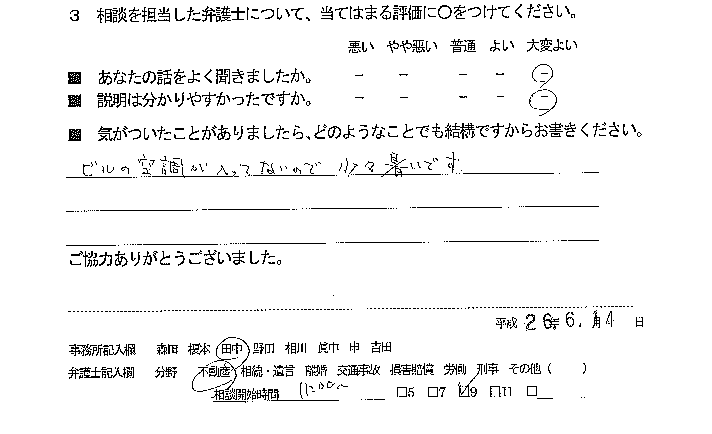 3 相談を担当した弁護士について、当てはまる評価に○をつけてください。
悪い やや悪い 普通 よい 大変よい
あなたの話をよく聞きましたか。 － － － － －
説明は分かりやすかったですか。 － － － － －
気がついたことがありましたら、どのようなことでも結構ですからお書きください。
ビルの空調が入ってないので 少々暑いです
ご協力ありがとうございました。
平成 26年 6月14日
事務所記入欄 森田 榎本 田中 野田 相川 眞中 申 吉田
弁護士記入欄 分野 不動産 相続・遺言 離婚 交通事故 損害賠償 労働 刑事 その他（ ）
相談開始時間 □5 □7 ☑9 □11 □